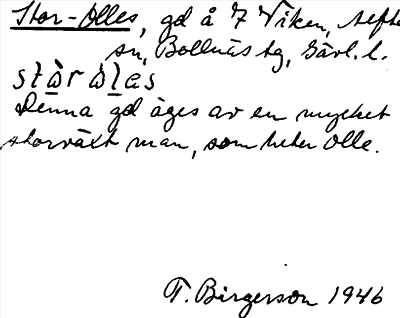 Stor-Olles, gd å 7 Viken, Alfta
sn, Bollnäs tg, Gävl. l.
stɷ̀r ɷ̀les
Denna gd äges av en mycket
storväxt man, som heter Olle.
T. Birgerson 1946